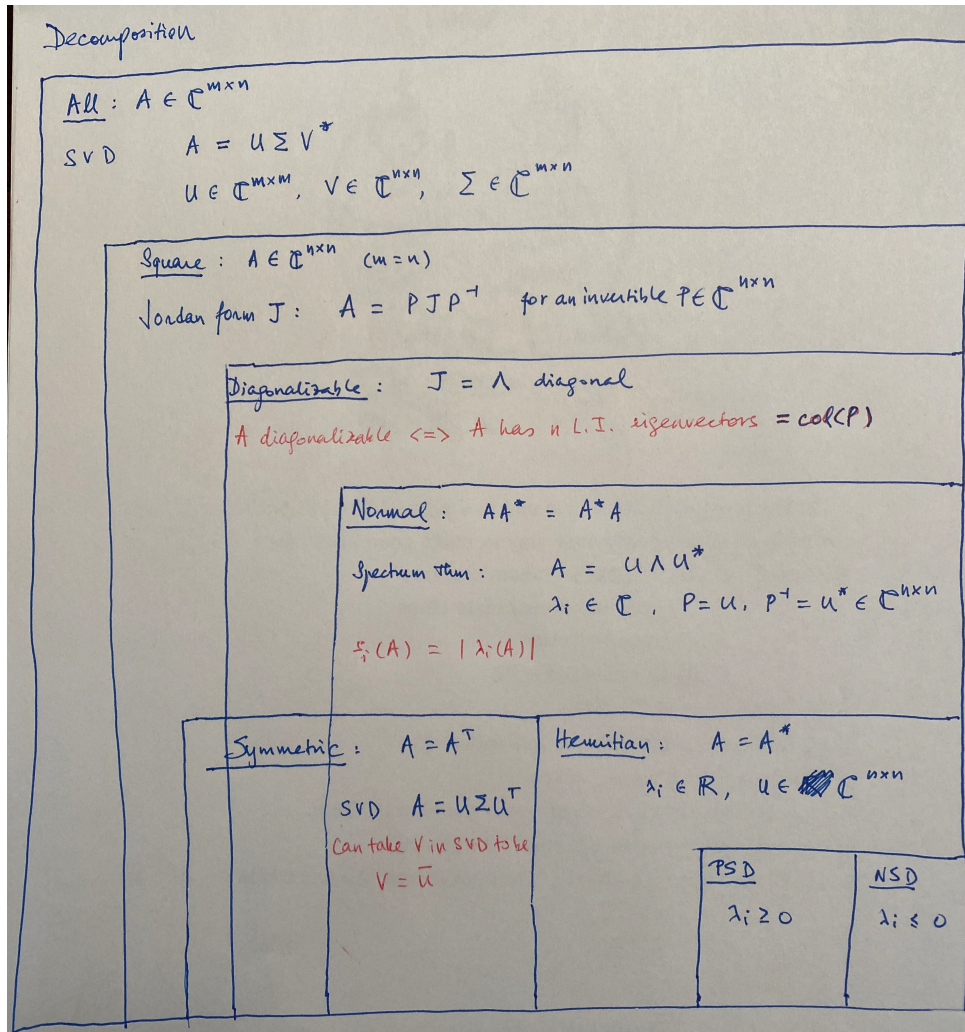 Decomposition
All : A ∈ ℂ^{m×n}
SVD A = U Σ V*
U ∈ ℂ^{m×m}, V ∈ ℂ^{n×n}, Σ ∈ ℂ^{m×n}
Square : A ∈ ℂ^{n×n} (m = n)
Jordan form J : A = P J P⁻¹ for an invertible P ∈ ℂ^{n×n}
Diagonalizable : J = Λ diagonal
A diagonalizable <=> A has n L.I. eigenvectors = col(P)
Normal : AA* = A*A
Spectrum thm : A = U Λ U*
λᵢ ∈ ℂ, P = U, P⁻¹ = U* ∈ ℂ^{n×n}
(A) = | λᵢ(A) |
Symmetric : A = Aᵀ
SVD A = U Σ Uᵀ
Can take V in SVD to be
V = Ū
Hermitian : A = A*
λᵢ ∈ ℝ, U ∈ ℂ^{n×n}
PSD
λᵢ ≥ 0
NSD
λᵢ ≤ 0